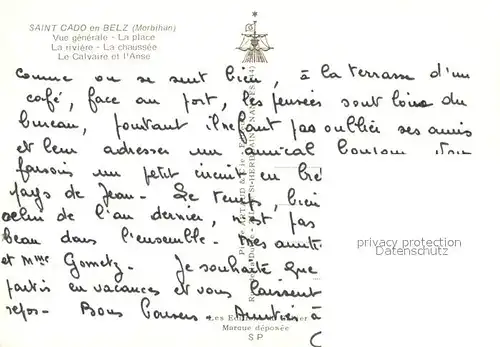 SAINT CADO en BELZ (Morbihan)
Vue générale - La place
La rivière - La chaussée
Le Calvaire et l'Anse
comme on se sent bien, à la terrasse d'un
café, face au port, les pensées sont loin du
bureau, pourtant il ne faut pas oublier ses amis
et leur adresser un amical bonjour
faisons un petit circuit en Bre
pays de Jean. Le temps, bien
celui de l'an dernier, n'est pas
beau dans l'ensemble. Mes amit
et Mme Gometz. Je souhaite que
partis en vacances et vous laissent
repos. Bons baisers. Amitiés à
privacy protection
Datenschutz
Les Editions
Marque déposée
SP